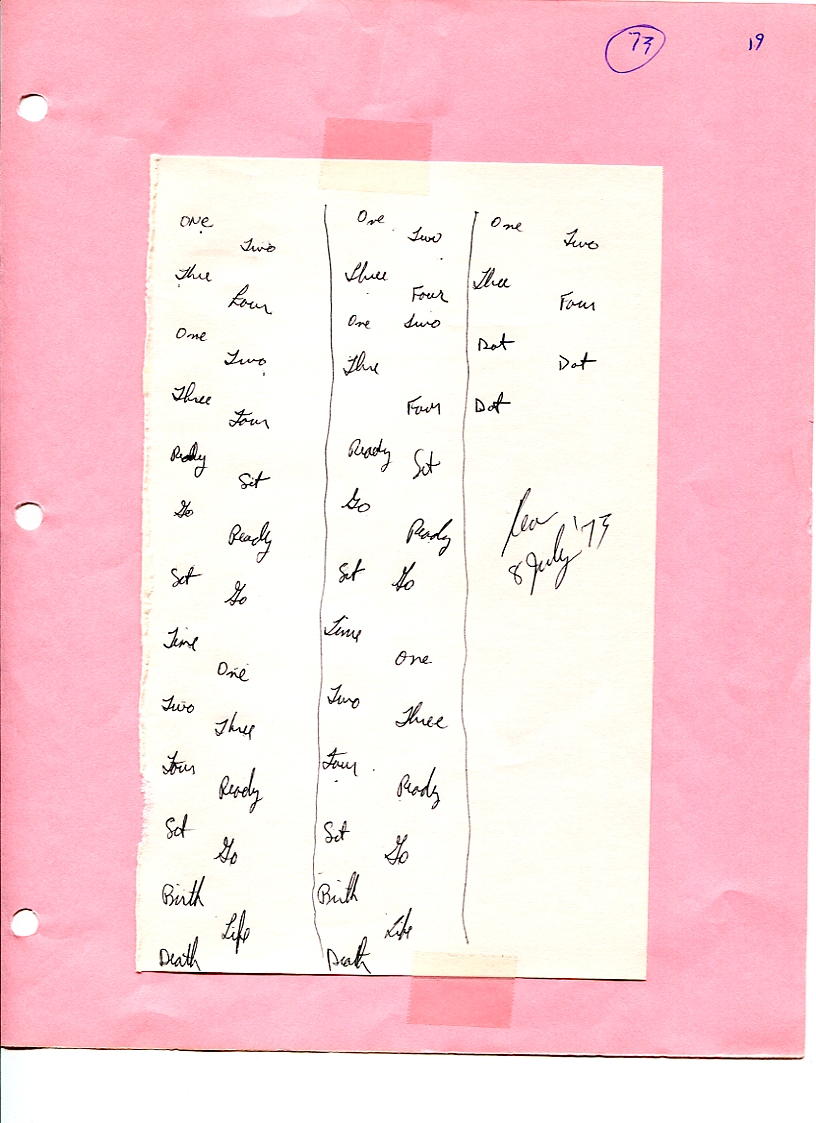 73 19
One
Two
Three
Four
One
Two
Three
Four
Ready
Set
Go
Ready
Set
Go
Time
One
Two
Three
Four
Ready
Set
Go
Birth
Life
Death
One
Two
Three
Four
One Two
Three
Four
Ready
Set
Go
Ready
Set Go
Time
One
Two
Three
Four
Ready
Set
Go
Birth
Life
Death
One
Two
Three
Four
Dot
Dot
Dot
'73
8 July